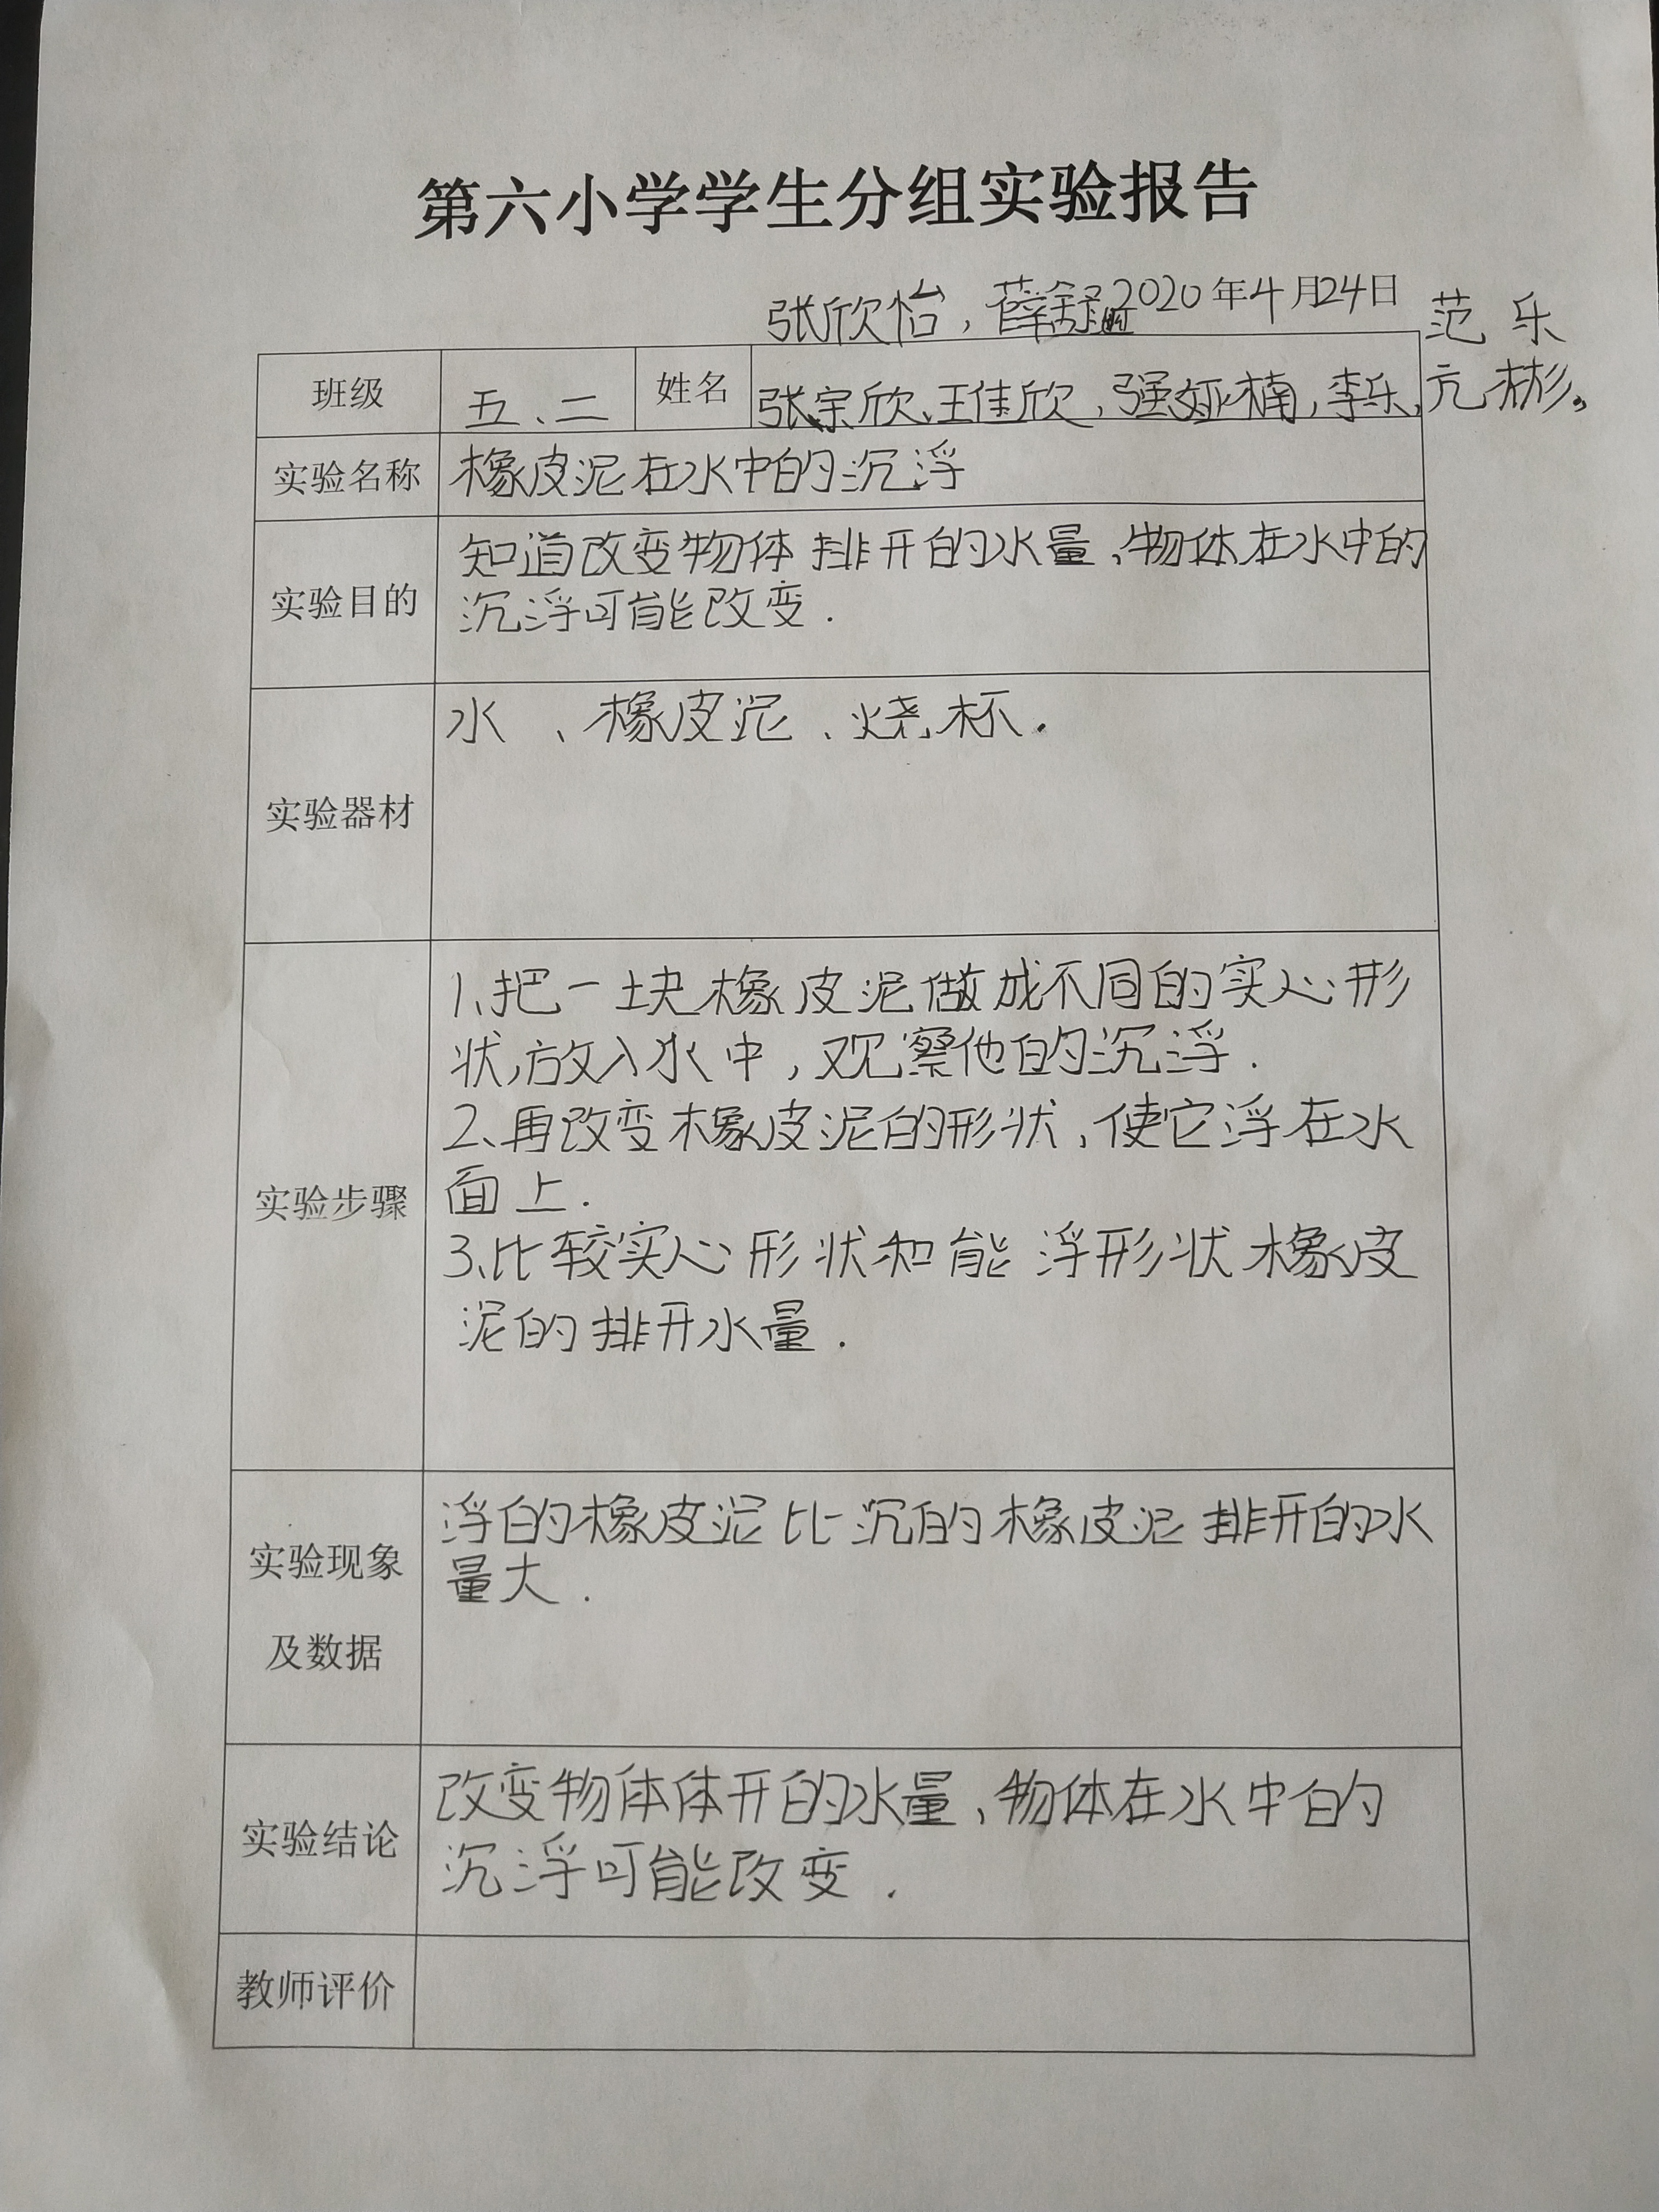 第六小学学生分组实验报告
张欣怡，薛舒 2020年4月24日 范 乐
班级 五、二 姓名 张宗欣、王佳欣，强娅楠，李乐，亢彬。
实验名称 橡皮泥在水中的沉浮
实验目的 知道改变物体排开的水量、物体在水中的
沉浮可能改变.
实验器材 水、橡皮泥、烧杯.
实验步骤 1、把一块橡皮泥做成不同的实心形
状,放入水中，观察他的沉浮.
2、再改变橡皮泥的形状，使它浮在水
面上.
3、比较实心形状和能浮形状橡皮
泥的排开水量.
实验现象 浮的橡皮泥比沉的橡皮泥排开的水
量大.
及数据
实验结论 改变物体体开的水量、物体在水中的
沉浮可能改变.
教师评价